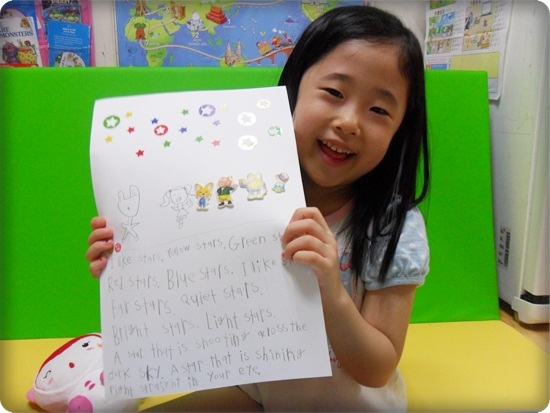 I like stars, Yellow stars, Green s
Red stars, Blue stars. I like s
Far stars, Quiet stars.
Bright stars, Light stars.
A star that is shooting across the
dark sky. A star that is shining
right straight in your eye.
MONSTERS